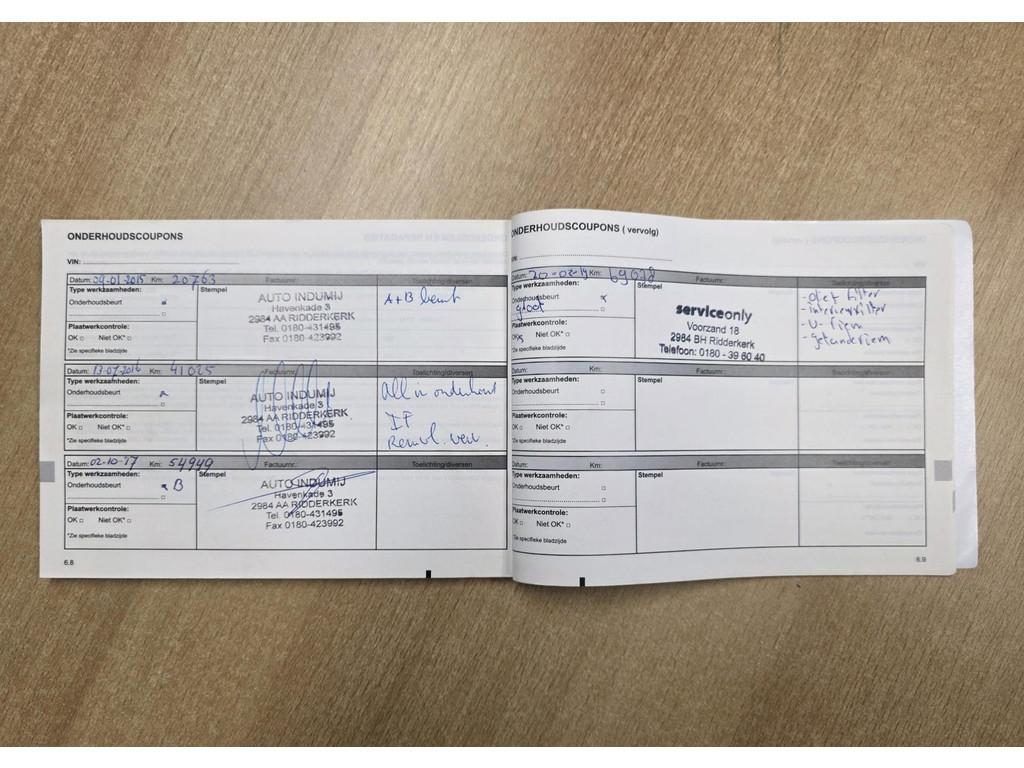 ONDERHOUDSCOUPONS
VIN:
Datum: 09-01-2015 Km: 20763 Factuurnr.: Toelichting/diversen
Type werkzaamheden: Stempel
Onderhoudsbeurt
AUTO INDUMIJ
Havenkade 3
2984 AA RIDDERKERK
Tel. 0180-431495
Fax 0180-423992
A+B beurt
Plaatwerkcontrole:
OK Niet OK*
*Zie specifieke bladzijde
Datum: 13-07-2016 Km: 41025 Factuurnr.: Toelichting/diversen
Type werkzaamheden: Stempel
Onderhoudsbeurt
AUTO INDUMIJ
Havenkade 3
2984 AA RIDDERKERK
Tel. 0180-431495
Fax 0180-423992
All in onderhoud
Plaatwerkcontrole:
OK Niet OK*
*Zie specifieke bladzijde
Datum: 02-10-17 Km: 54949 Factuurnr.: Toelichting/diversen
Type werkzaamheden: Stempel
Onderhoudsbeurt B
AUTO INDUMIJ
Havenkade 3
2984 AA RIDDERKERK
Tel. 0180-431495
Fax 0180-423992
Plaatwerkcontrole:
OK Niet OK*
*Zie specifieke bladzijde
6.8
ONDERHOUDSCOUPONS ( vervolg)
VIN:
Datum: 20-02-19 Km: 69078 Factuurnr.: Toelichting/diversen
Type werkzaamheden: Stempel
Onderhoudsbeurt
groot
serviceonly
Voorzand 18
2984 BH Ridderkerk
Telefoon: 0180 - 39 60 40
- olief filter
- interieurfilter
- V- riem
- getanderiem
Plaatwerkcontrole:
OK Niet OK*
*Zie specifieke bladzijde
Datum: Km: Factuurnr.: Toelichting/diversen
Type werkzaamheden: Stempel
Onderhoudsbeurt
Plaatwerkcontrole:
OK Niet OK*
*Zie specifieke bladzijde
Datum: Km: Factuurnr.: Toelichting/diversen
Type werkzaamheden: Stempel
Onderhoudsbeurt
Plaatwerkcontrole:
OK Niet OK*
*Zie specifieke bladzijde
6.9